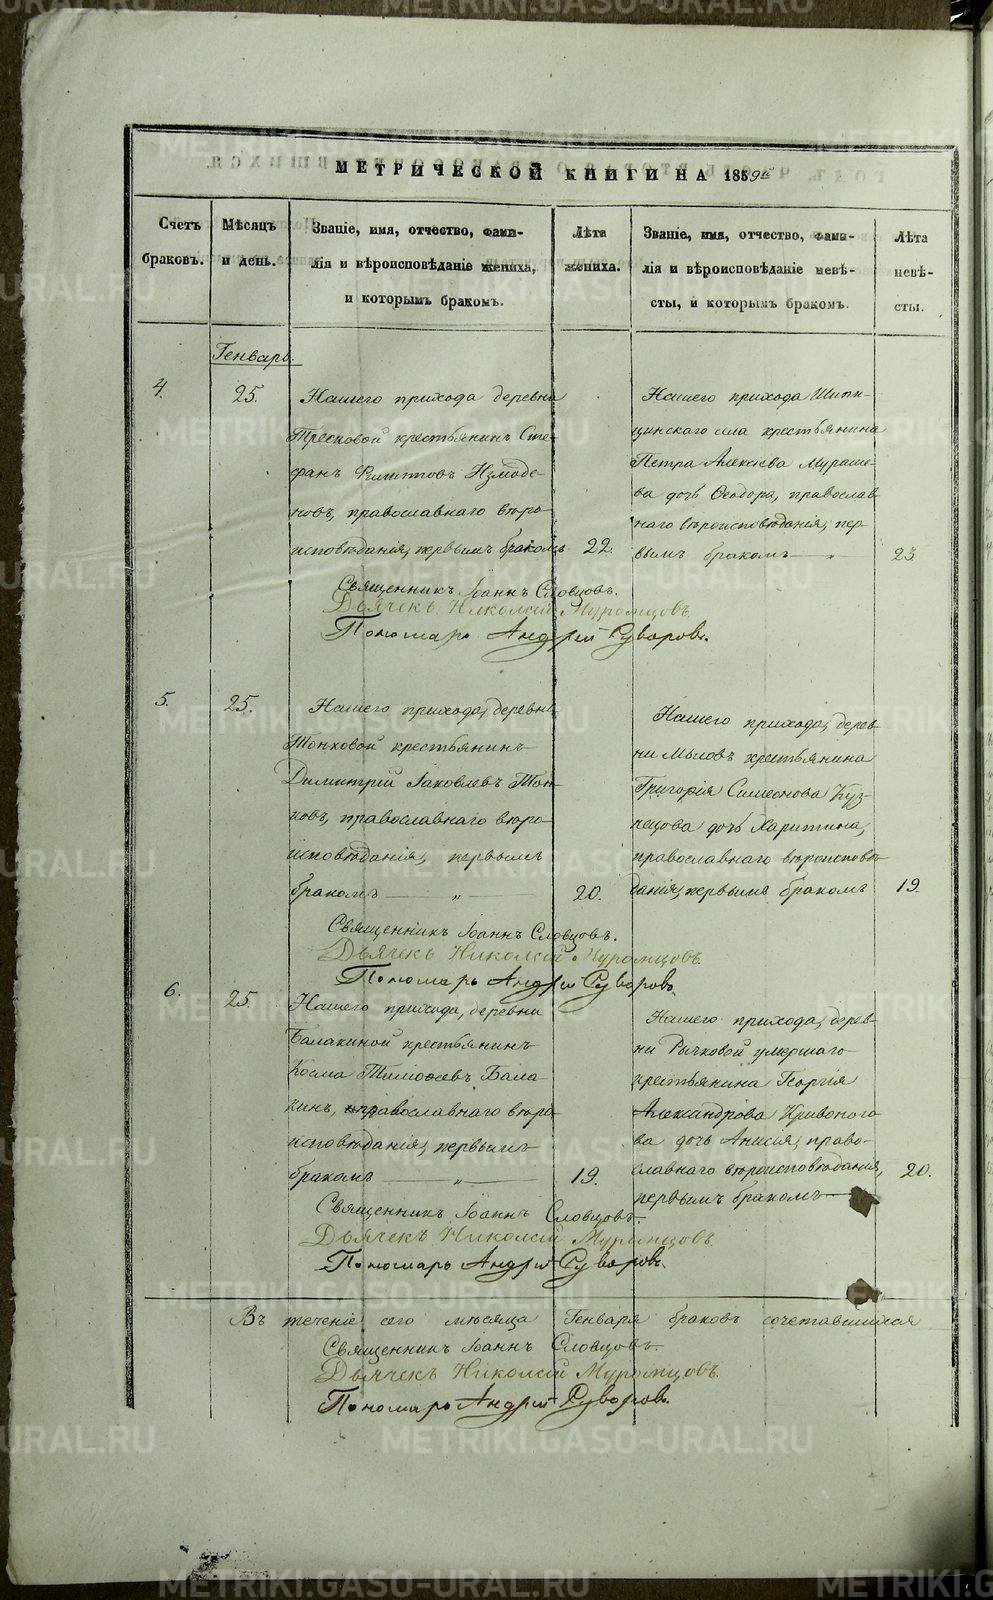 МЕТРИЧЕСКОЙ КНИГИ НА 1859й
Счетъ браковъ.
Мѣсяцъ и день.
Званіе, имя, отчество, фами-
лія и вѣроисповѣданіе жениха,
и которымъ бракомъ.
Лѣта
жениха.
Званіе, имя, отчество, фами-
лія и вѣроисповѣданіе невѣ-
сты, и которымъ бракомъ.
Лѣта
невѣ-
сты.
Генварь.
4.
25.
Нашего прихода деревни
крестьянинъ Сте-
фанъ Филиповъ Измоде-
новъ, православнаго вѣро-
исповѣданія, первымъ бракомъ
22.
Нашего прихода Шипи-
цинскаго села крестьянина
Петра Алексѣева Мураше-
ва дочь Ѳеодора, православ-
наго вѣроисповѣданія, пер-
вымъ бракомъ — „
23
Священникъ Іоаннъ Словцовъ.
Дьячекъ Николай Муромцовъ
Пономарь Андрей Суворовъ.
5.
25.
Нашего прихода, деревни
Тонковой крестьянинъ
Димитрій Іаковлевъ Тон-
ковъ, православнаго вѣро-
исповѣданія, первымъ
бракомъ — „ —
20.
Нашего прихода, дерев-
ни Мыловъ крестьянина
Григорія Симеонова Куз-
нецова дочь Харитина,
православнаго вѣроисповѣ-
данія, первымъ бракомъ
19.
Священникъ Іоаннъ Словцовъ.
Дьячекъ Николай Муромцовъ
Пономарь Андрей Суворовъ
6.
25.
Нашего прихода, деревни
Балакиной крестьянинъ
Косма Тимоѳеевъ Бала-
кинъ, православнаго вѣро-
исповѣданія, первымъ
бракомъ — „ —
19.
Нашего прихода, дерев-
ни Рычковой умершаго
крестьянина Георгія
Александрова Кривоного-
ва дочь Анисія, право-
славнаго вѣроисповѣданія,
первымъ бракомъ
20.
Священникъ Іоаннъ Словцовъ.
Дьячекъ Николай Муромцовъ
Пономарь Андрей Суворовъ.
Въ теченіе сего мѣсяца Генваря браковъ сочетавшихся
Священникъ Іоаннъ Словцовъ.
Дьячекъ Николай Муромцовъ.
Пономарь Андрей Суворовъ.
METRIKI.GASO-URAL.RU